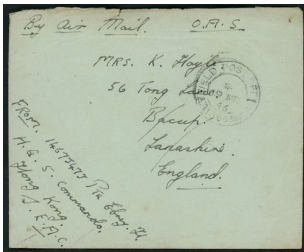 By Air Mail. O.A.S.
MRS. K. Hoyle
56 Tong Lane
Bacup.
Lancashire.
England.
FIELD POST
FROM. 14677473 Pte Ebury H.
H.Q. 5 Commando.
Hong Kong.
S.E.A.C.